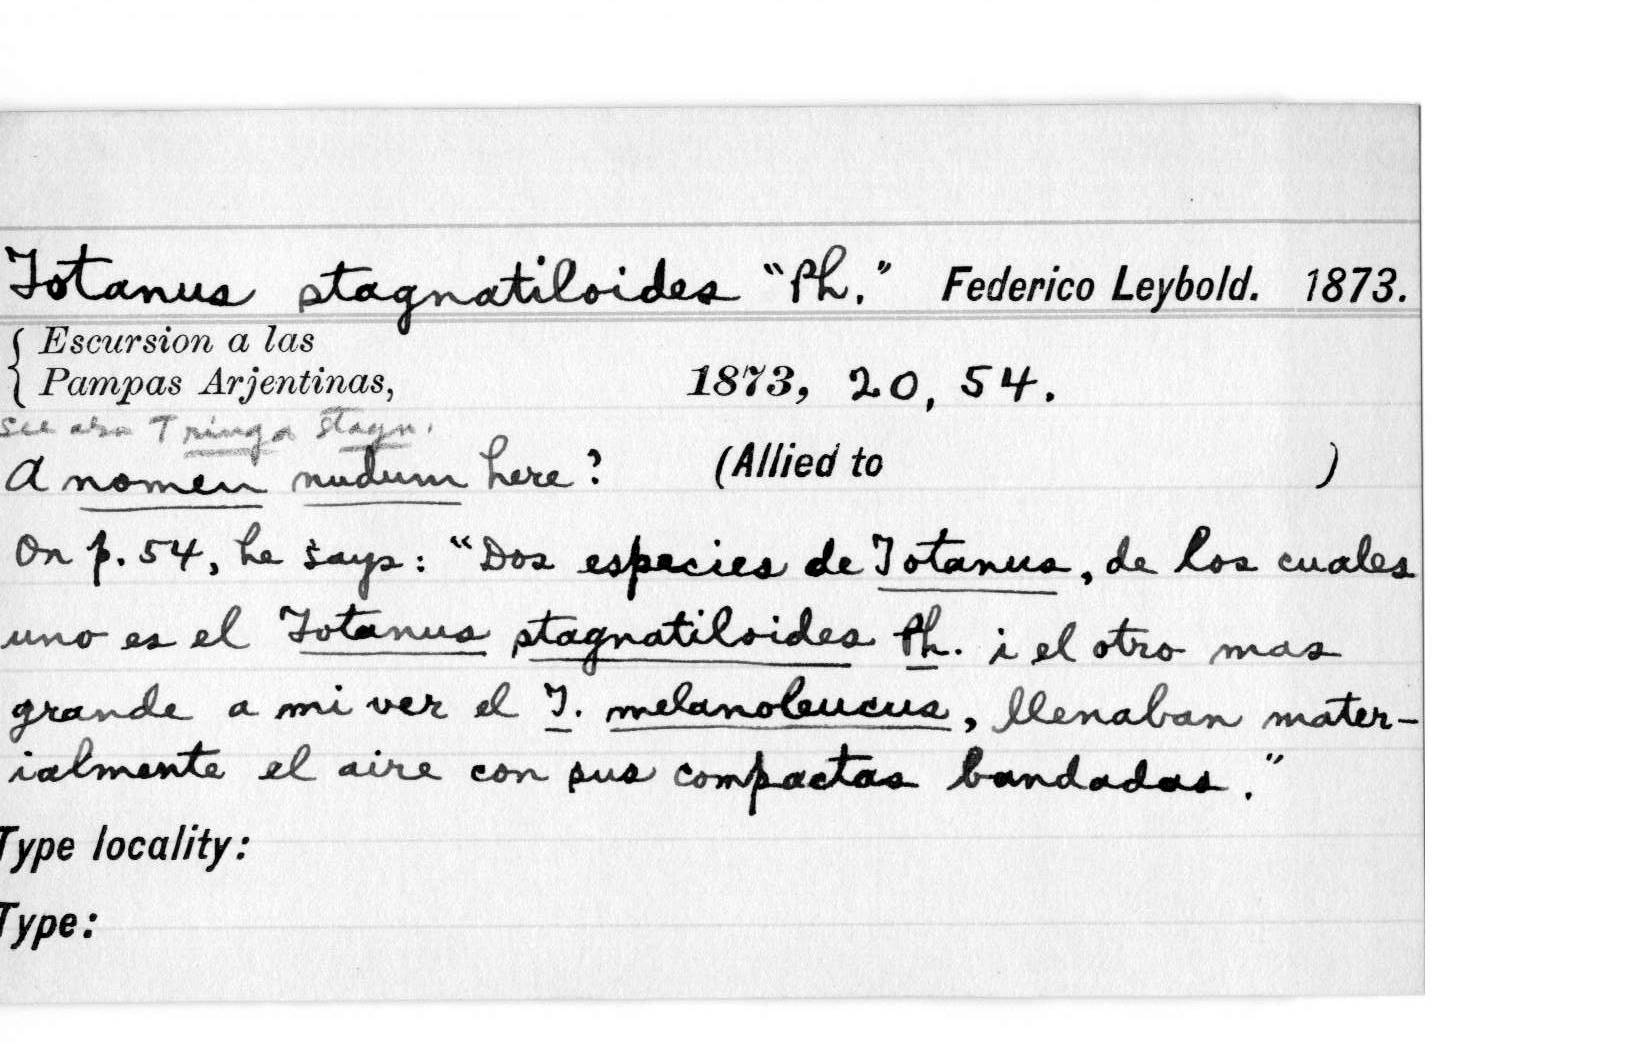 Totanus stagnatiloides "Ph." Federico Leybold. 1873.
Escursion a las
Pampas Arjentinas, 1873, 20, 54.
See also Tringa stagn.
A nomen nudum here? (Allied to )
On p. 54, he says: "Dos especies de Totanus, de los cuales
uno es el Totanus stagnatiloides Ph. i el otro mas
grande a mi ver el T. melanoleucus, llenaban mater-
ialmente el aire con sus compactas bandadas."
Type locality:
Type: